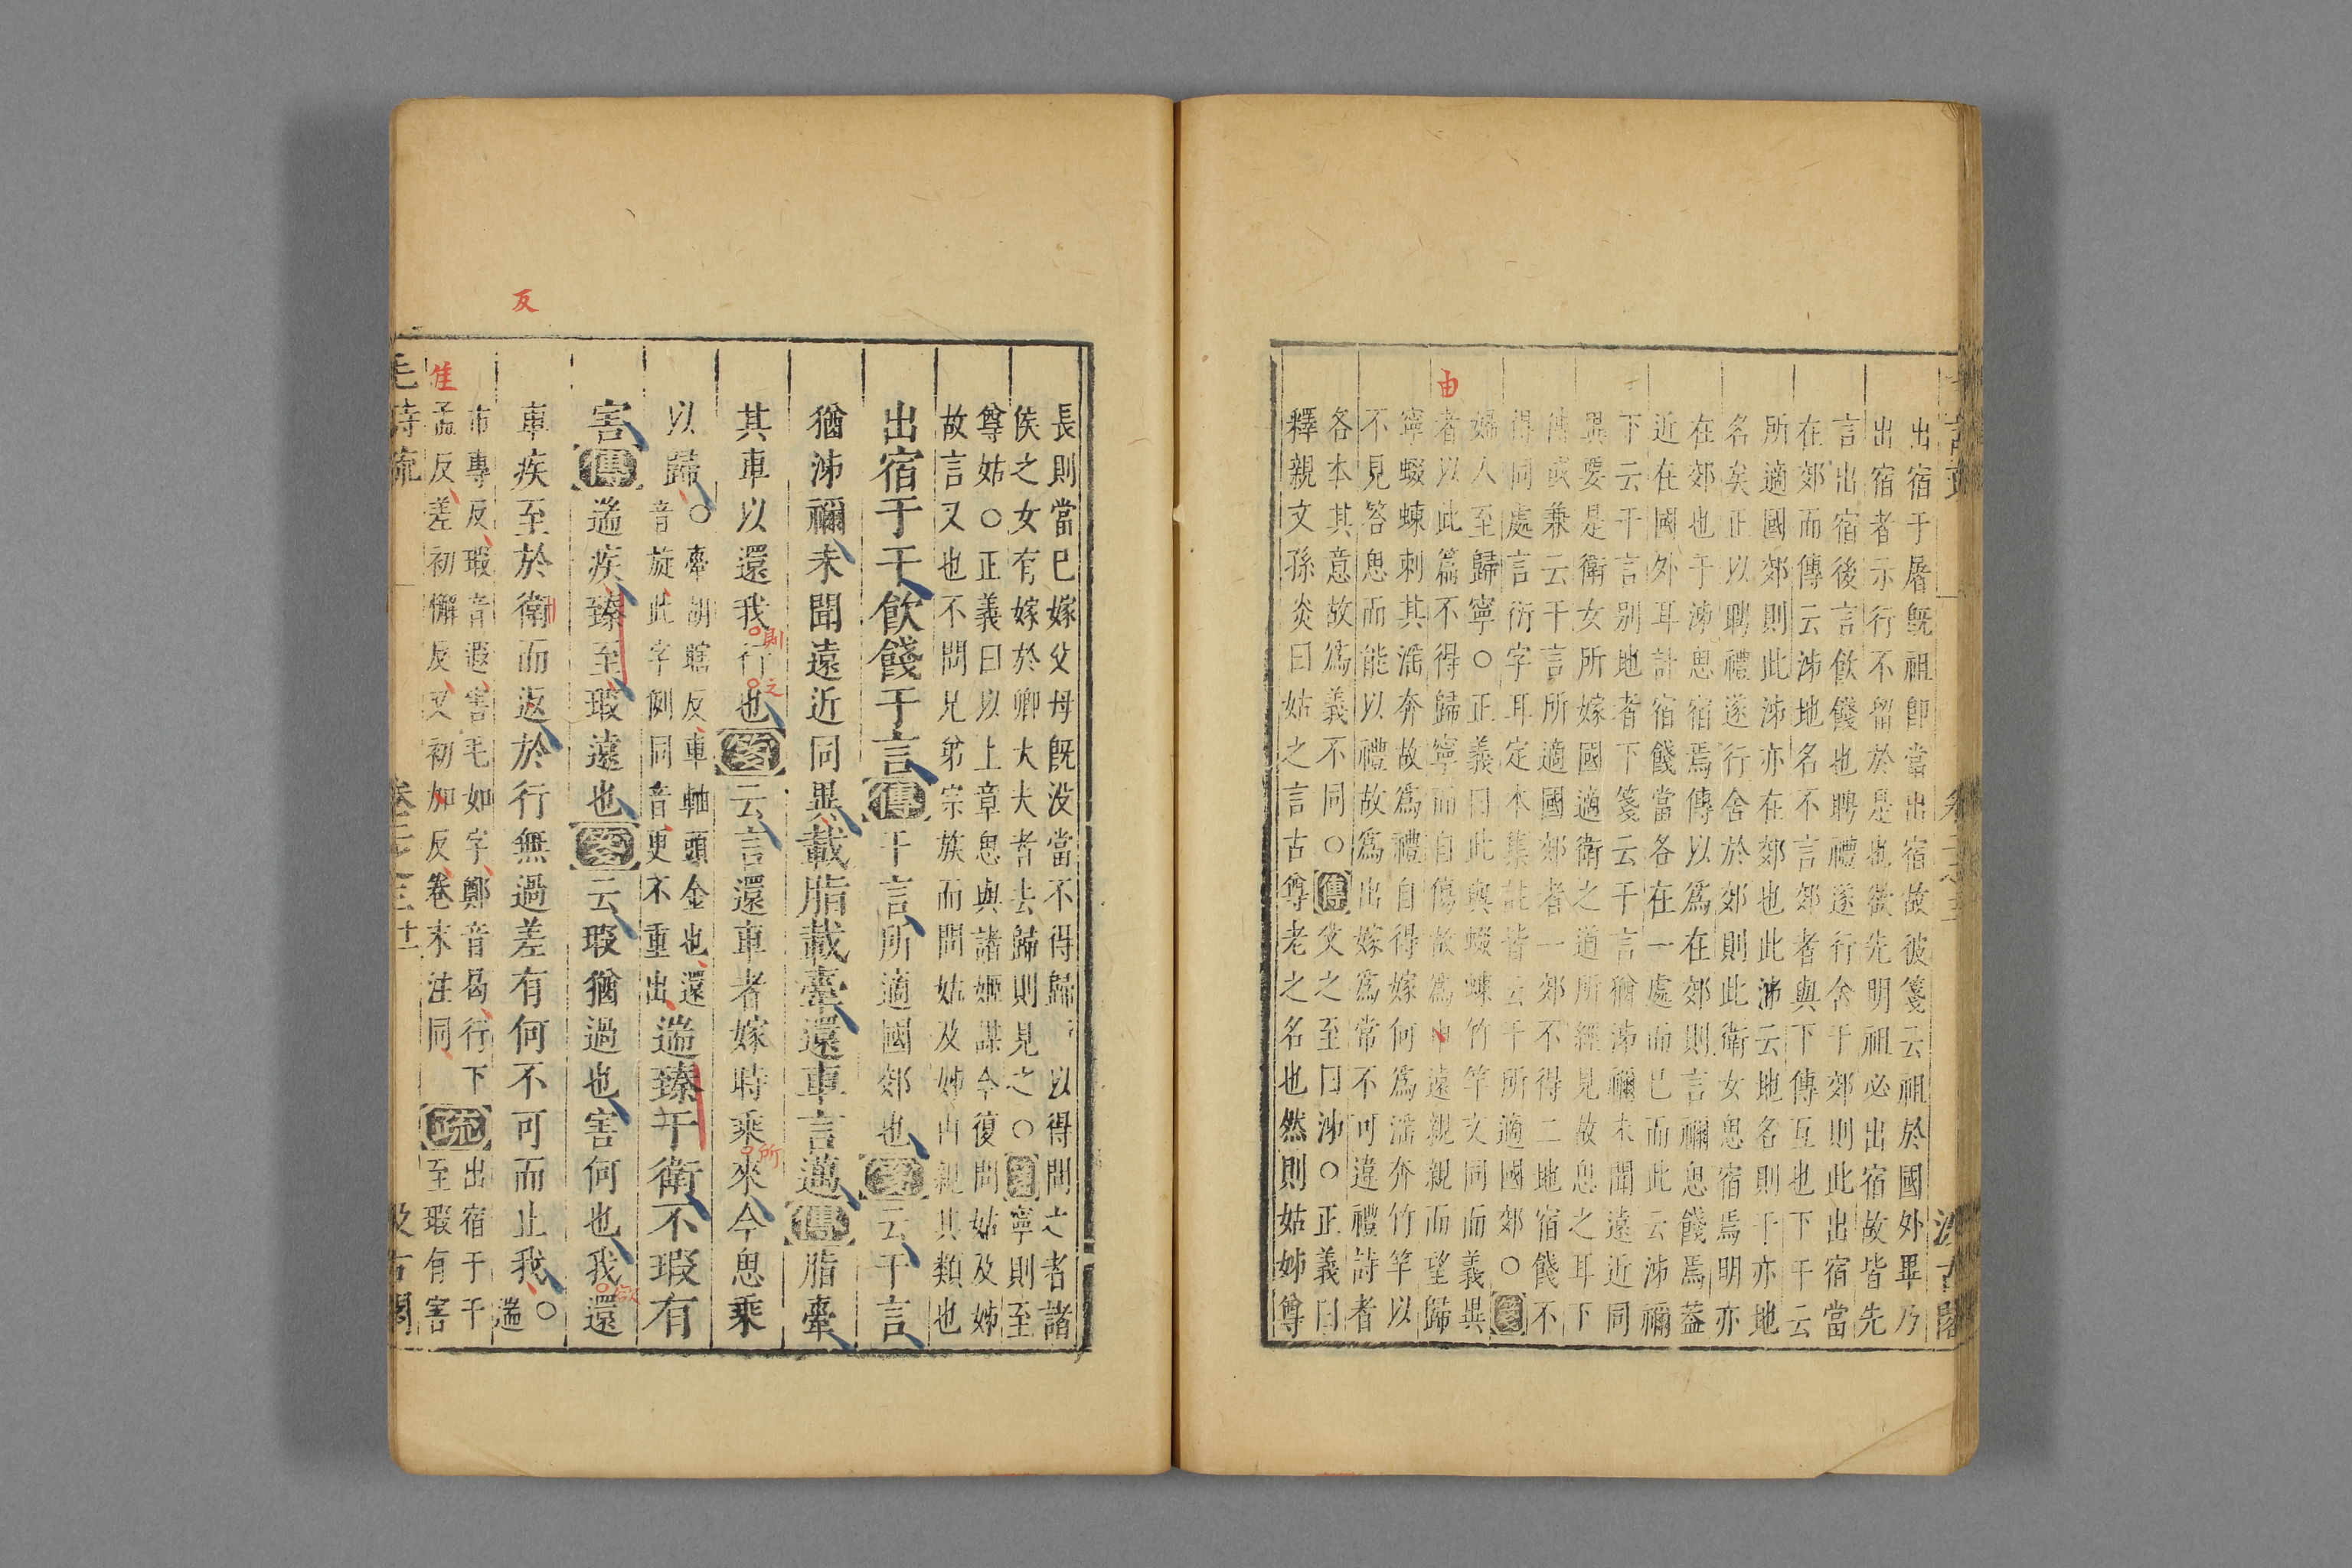 出宿于屠旣祖卽當出宿故彼箋云祖於國外畢乃
出宿者示行不留於是也欲先明祖必出宿故皆先
言出宿後言飲餞也聘禮遂行舍于郊則此出宿當
在郊而傳云泲地名不言郊者與下傳互也下干云
所適國郊則此泲亦在郊也此泲云地名則干亦地
名矣正以聘禮遂行舍於郊則此衛女思宿焉明亦
在郊也于泲思宿焉傳以爲在郊則言禰思餞焉蓋
近在國外耳計宿餞當各在一處而已而此云泲禰
下云干言别地者下箋云干言猶泲禰未聞遠近同
異要是衛女所嫁國適衛之道所經見故思之耳下
傳或兼云干言所適國郊者一郊不得二地宿餞不
得同處言衍字耳定本集註皆云干所適國郊○箋
婦人至歸寧○正義曰此與蝃蝀竹竿文同而義異
者以此篇不得歸寧而自傷故爲由遠親親而望歸
寧蝃蝀刺其淫奔故爲禮自得嫁何爲淫奔竹竿以
不見答思而能以禮故爲出嫁爲常不可違禮詩者
各本其意故爲義不同○傳父之至曰泲○正義曰
釋親文孫炎曰姑之言古尊老之名也然則姑姊尊
長則當已嫁父母旣没當不得歸 以得問之者諸
侯之女有嫁於卿大夫者去歸則見之○箋寧則至
尊姑○正義曰以上章思與諸姬謀今復問姑及姊
故言又也不問兄弟宗族而問姑及姊由親其類也
出宿于干飲餞于言傳干言所適國郊也箋云干言
猶泲禰未聞遠近同異載脂載舝還車言邁傳脂舝
其車以還我行也箋云言還車者嫁時乘來今思乘
則
之
所
以歸○舝胡瞎反車軸頭金也還
音旋此字例同音更不重出遄臻于衛不瑕有
害傳遄疾臻至瑕遠也箋云瑕猶過也害何也我還
欲
車疾至於衛而返於行無過差有何不可而止我○遄
反
市專反瑕音遐害毛如字鄭音曷行下
孟反差初懈反又初加反卷末注同疏出宿于干
至瑕有害
隹
由
毛詩疏 卷二之三 十二 汲古閣